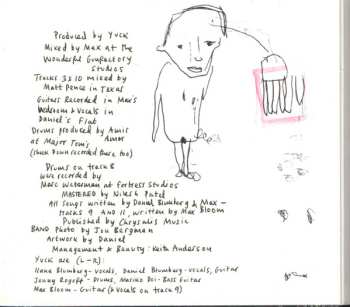 Produced by Yuck
Mixed by Max at the
Wonderful Gunfactory
Studios
Tracks 3 & 10 mixed by
Matt Pence in Texas
Guitars Recorded in Max's
Bedroom & Vocals in
Daniel's Flat
Drums produced by Amir
Amor
at Major Tom's
(Shook Down recorded there too)
Drums on track 8
were recorded by
Marc Waterman at Fortress Studios
MASTERED by Nilesh Patel
All songs written by Daniel Blumberg & Max -
tracks 9 and 11, written by Max Bloom
Published by Chrysalis Music
BAND Photo by Jon Bergman
Artwork by Daniel
Management & Beauty: Keith Anderson
Yuck are (L-R):
Ilana Blumberg - vocals, Daniel Blumberg - vocals, Guitar
Jonny Rogoff - Drums, Mariko Doi - Bass Guitar
Max Bloom - Guitar (& vocals on track 9)